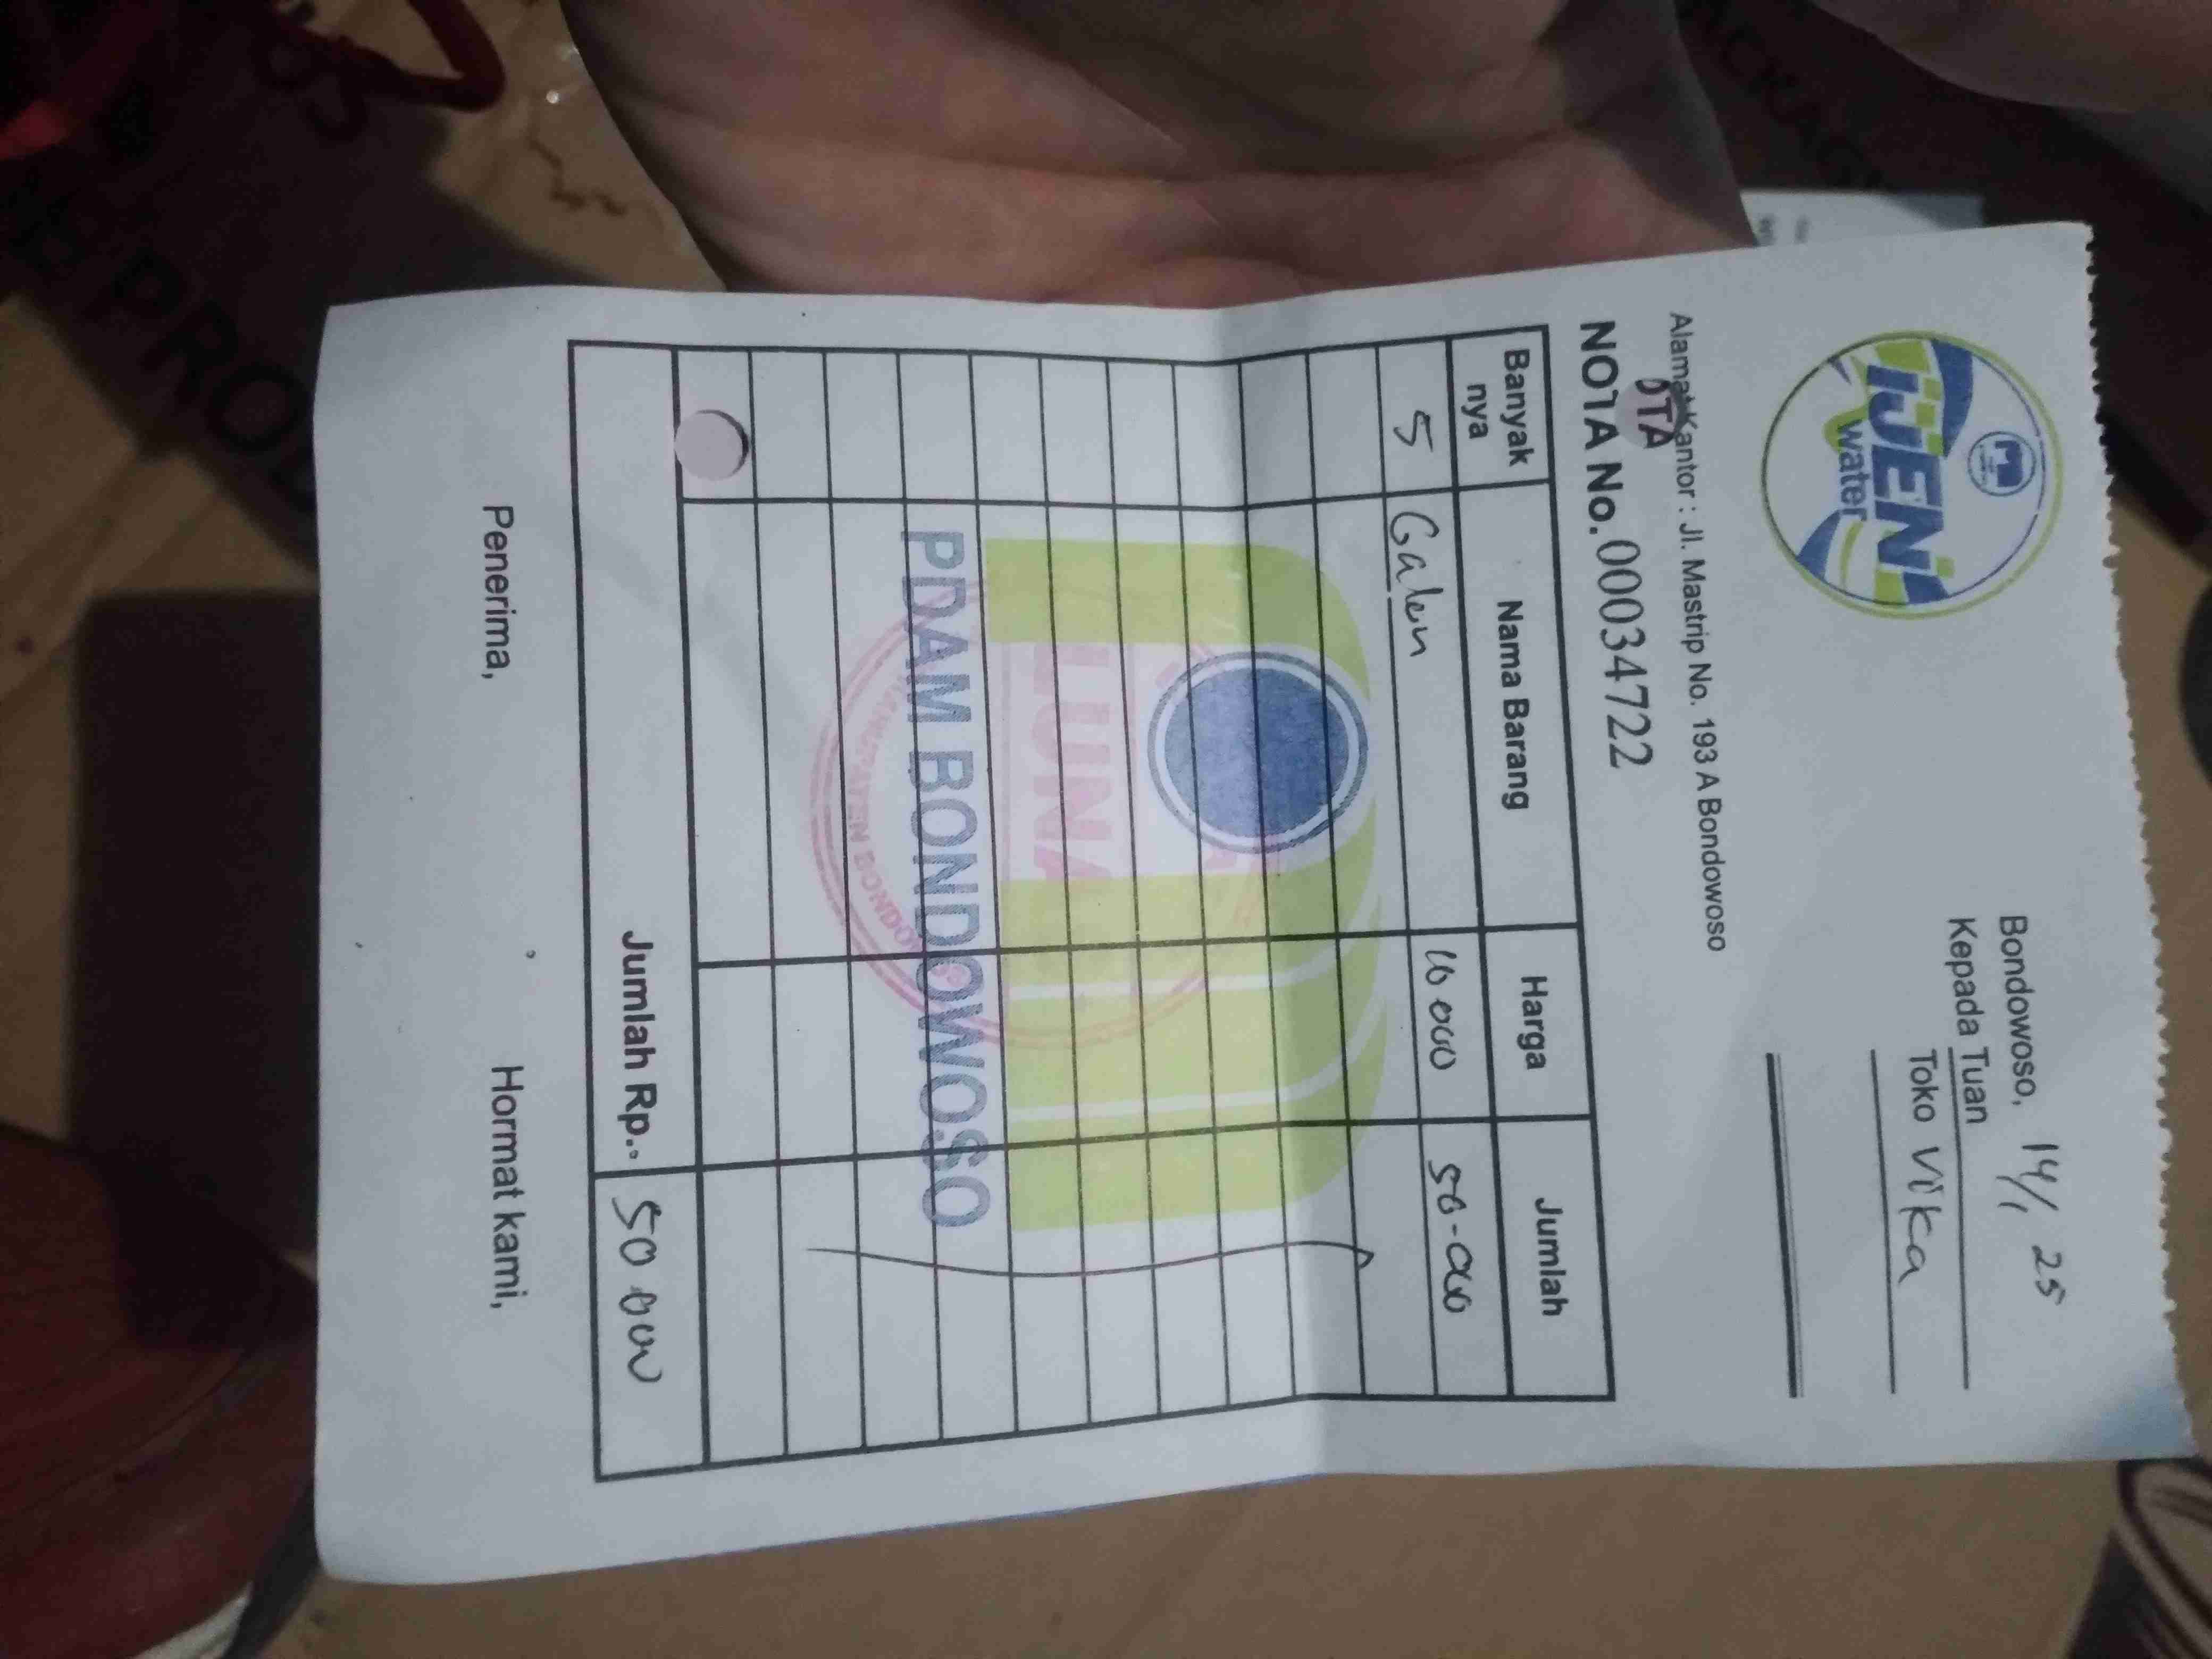 IJEN
water
Bondowoso, 14/1 25
Kepada Tuan
Toko Vika
Alamat Kantor : Jl. Mastrip No. 193 A Bondowoso
NOTA No. 00034722
Banyak nya Nama Barang Harga Jumlah
5 Galon 10 000 50-000
LUNA
PDAM BONDOWOSO
Jumlah Rp.. 50 000
Penerima, Hormat kami,